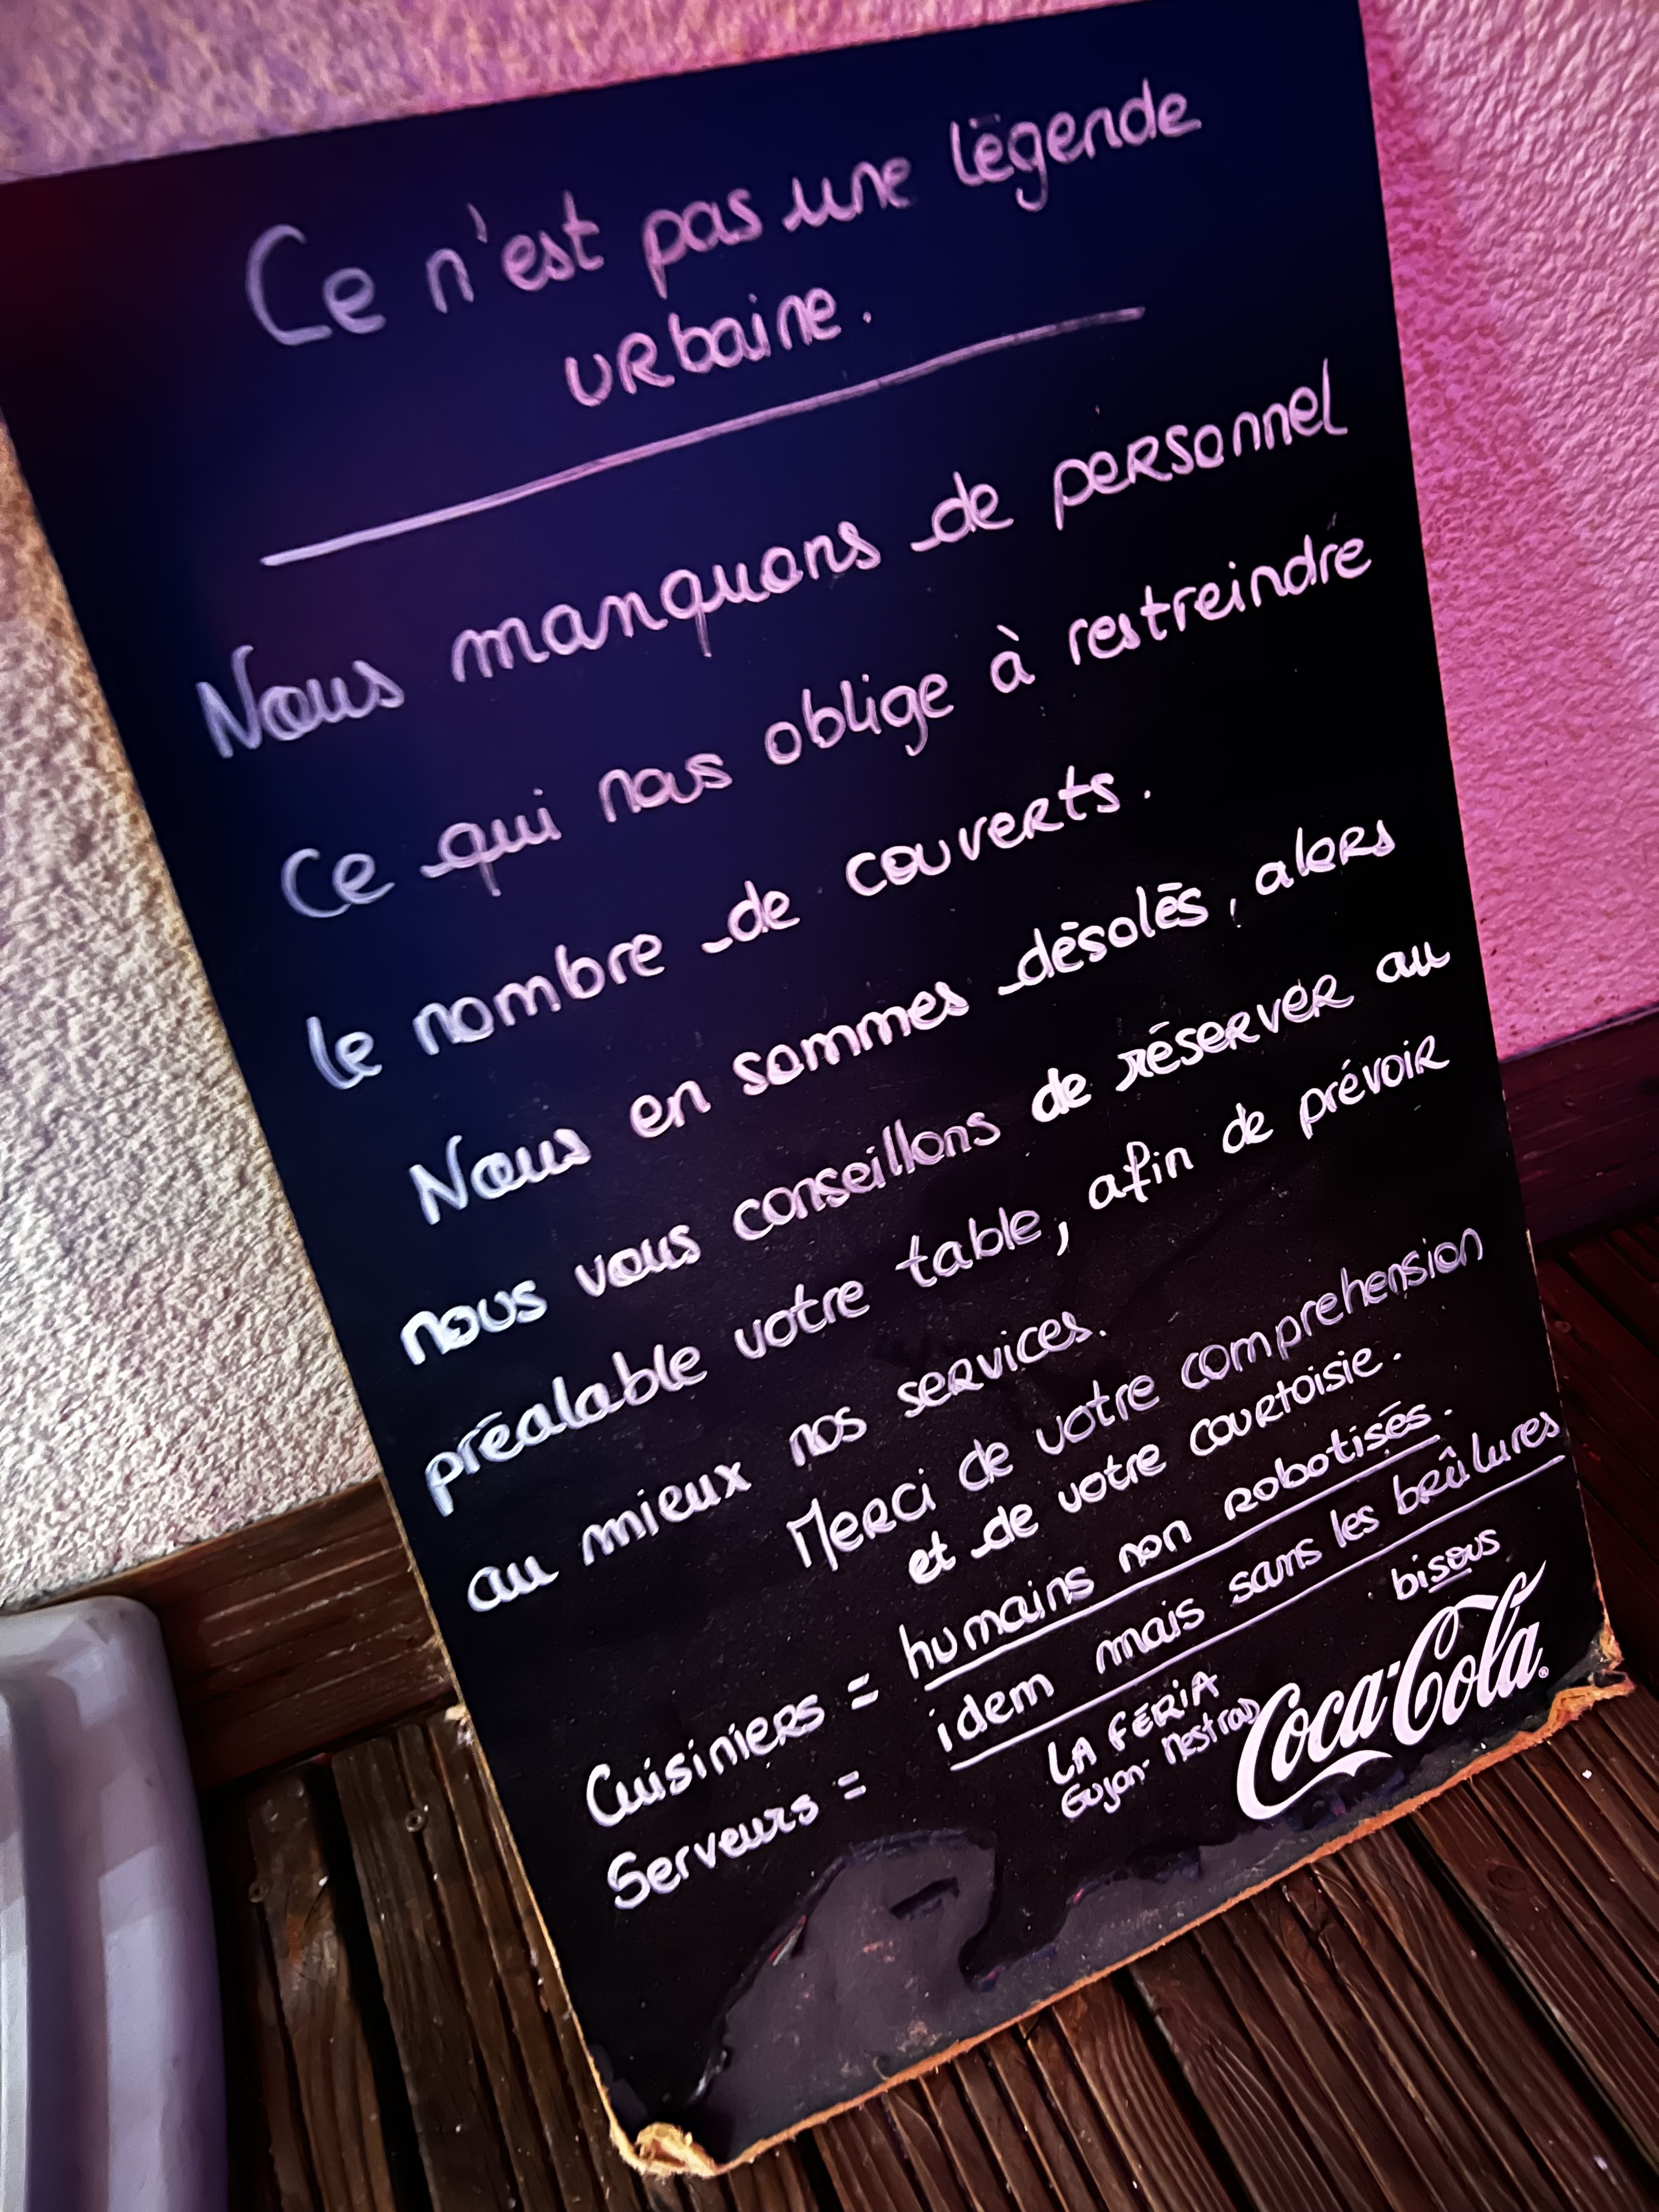 Ce n'est pas une légende
urbaine.
Nous manquons de personnel
Ce qui nous oblige à restreindre
le nombre de couverts.
Nous en sommes désolés, alors
nous vous conseillons de réserver au
préalable votre table, afin de prévoir
au mieux nos services.
Merci de votre comprehension
et de votre courtoisie.
Cuisiniers = humains non robotisés.
Serveurs = idem mais sans les brûlures
bisous
LA FERIA
Coca-Cola